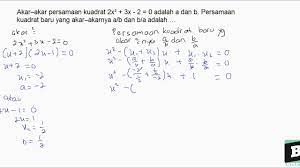 Akar-akar persamaan kuadrat 2x² + 3x - 2 = 0 adalah a dan b. Persamaan
kuadrat baru yang akar-akarnya a/b dan b/a adalah ...
akar²:
2x² + 3x - 2 = 0
(x+2)(2x-1) = 0
x₁ = -2
a = -2
2x - 1 = 0
2x = 1
x₂ = 1/2
b = 1/2
Persamaan kuadrat baru yg
akar²nya a/b dan b/a
x² - (x₁ + x₂)x + x₁ · x₂ = 0
x² - (a/b + b/a)x + a/b · b/a = 0
x² - (
B